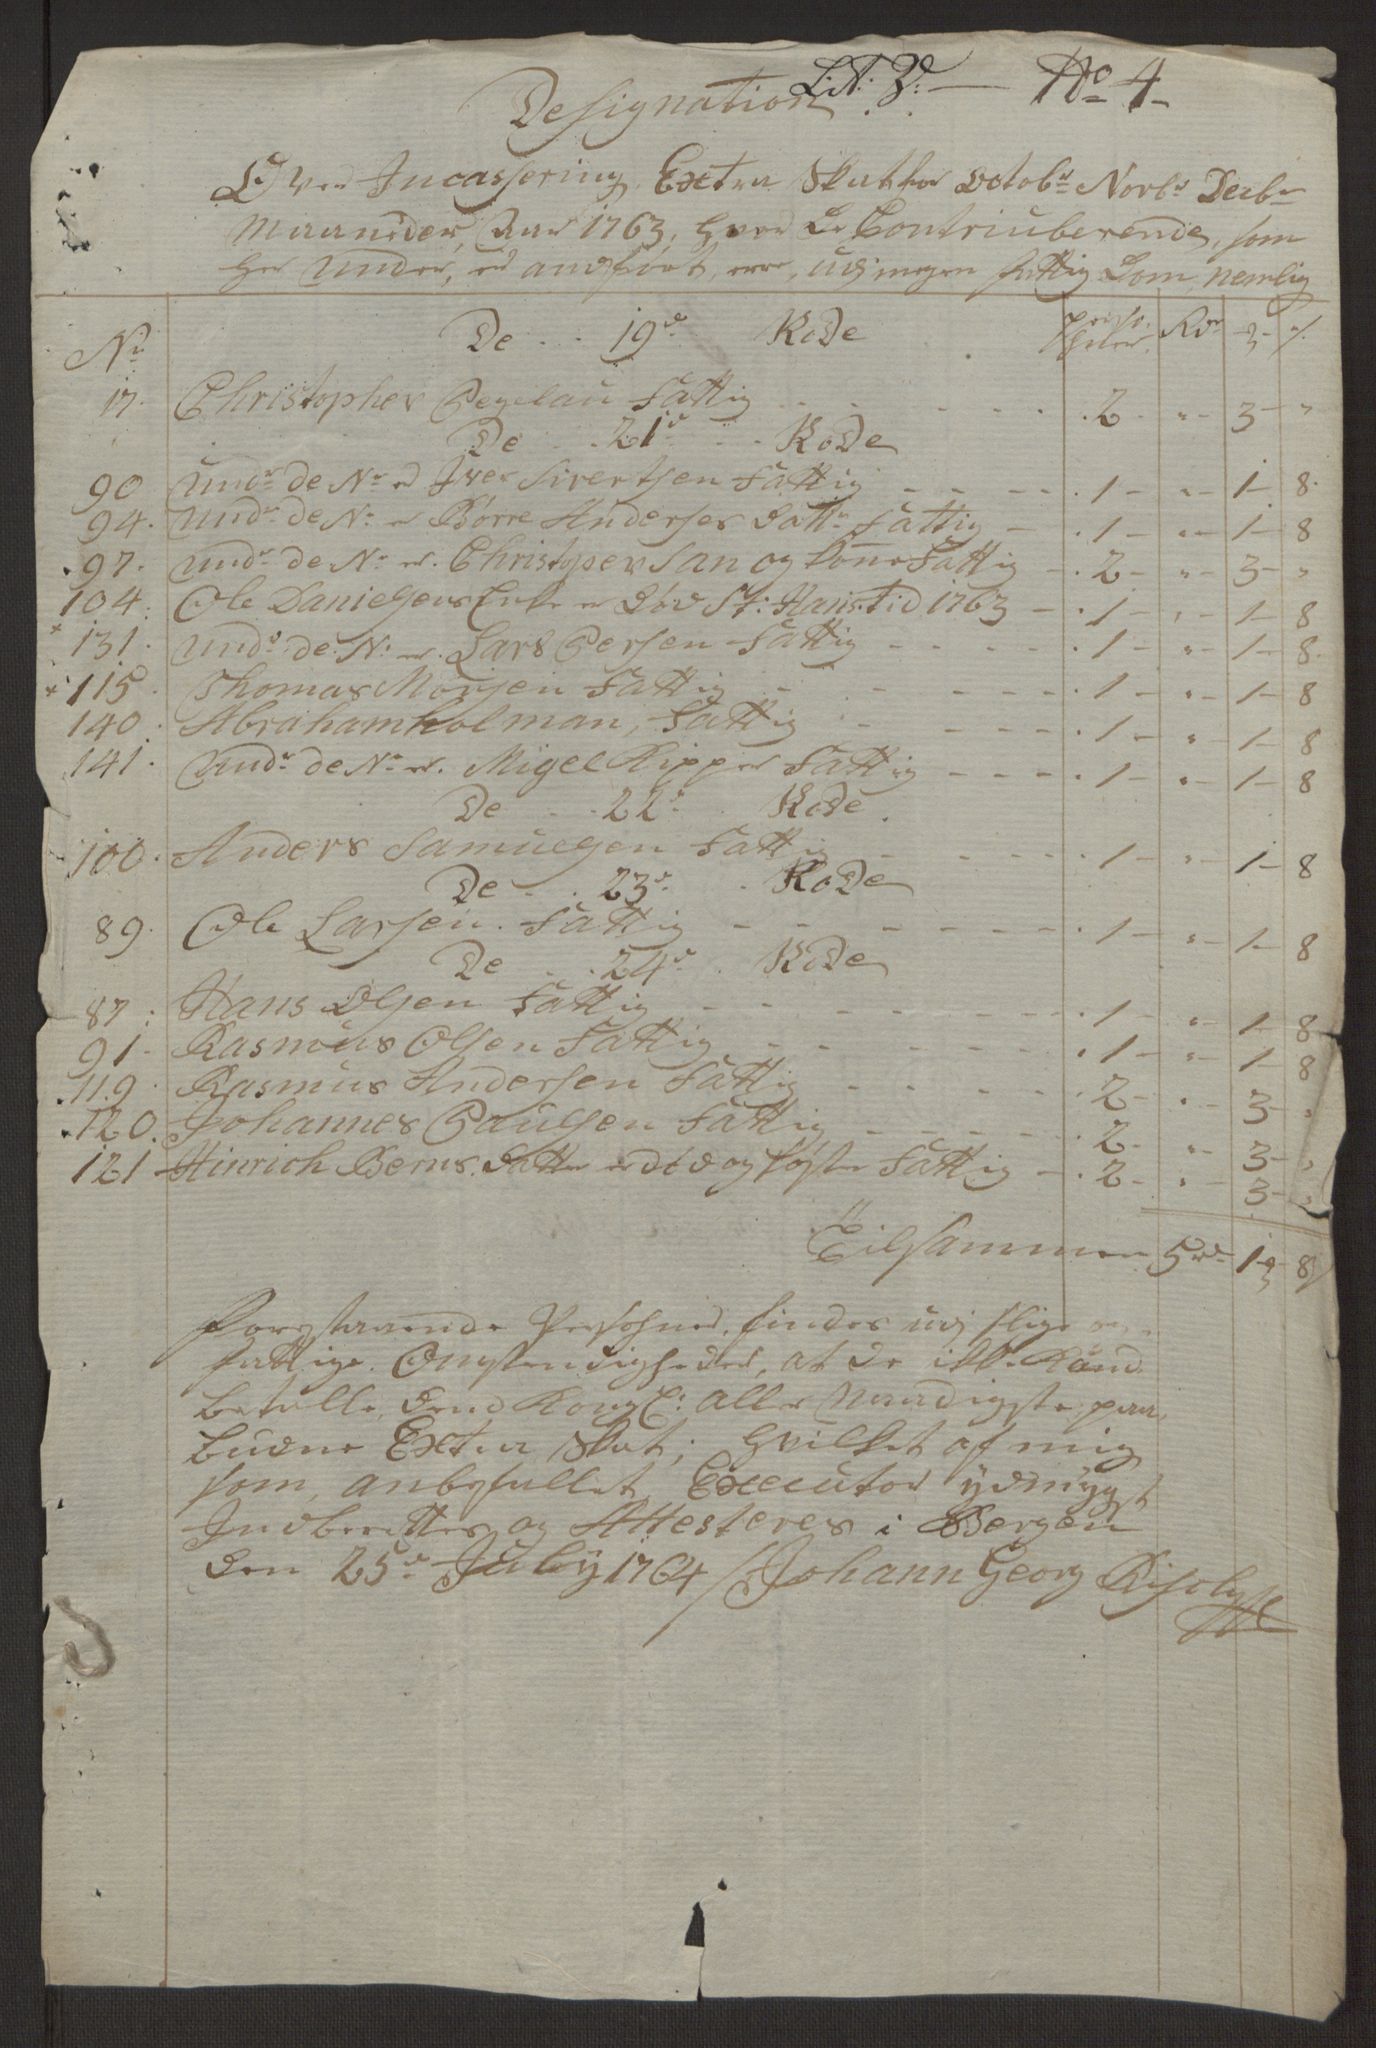 Lit: V: — No 4
Designation
Over Incassering Extra Skat for Octobr Novbr Decbr
Maaneder, Aar 1763, hvor De Contriuberende, som
her under, er andført, ere, udj megen fattig Dom, nemlig
Nr De 19de Kode Persohner Rdr
17. Christopher Pegelau Fattig 2 " 3 "
De 21de Kode
90 Undr de Nr er Iver Sivertsen Fattig 1 " 1 8
94. Undr de Nr er Børre Anderses Dattr Fattig 1 " 1 8
97. Undr de Nr er Christopersan og Kone Fattig 2 " 3 "
104. Ole Danielsens Enke er Død St: Hans Tid 1763 1 " 1 8
131. Undr de Nr er Lars Persen Fattig 1 " 1 8
115. Thomas Monsen Fattig 1 " 1 8
140. Abraham Holman, Fattig 1 " 1 8
141. Undr de Nr er Migel Kipper Fattig 1 " 1 8
De 22de Kode
100. Anders Samuelsen Fattig 1 " 1 8
De 23de Kode
89. Ole Larsen Fattig 1 " 1 8
De 24de Kode
87. Hans Olsen Fattig 1 " 1 8
91. Rasmus Olsen Fattig 1 " 1 8
119. Rasmus Andersen Fattig 2 " 3 "
120. Johannes Paulsen Fattig 2 " 3 "
121 Hinrich Berns Datter er død og søster Fattig 2 " 3 "
Tilsammen 5rd 1 8
Forestaaende Persohner, findes udj slige
fattige Omstendigheder, at de icke Kand
betalle, dend Kongl: aller Naadigste paa
budne Extra Skat, hvilket af mig
som anbefallet Executor ydmygst
Indberettes og Attesteres i Bergen
den 25de July 1764 Johann Georg